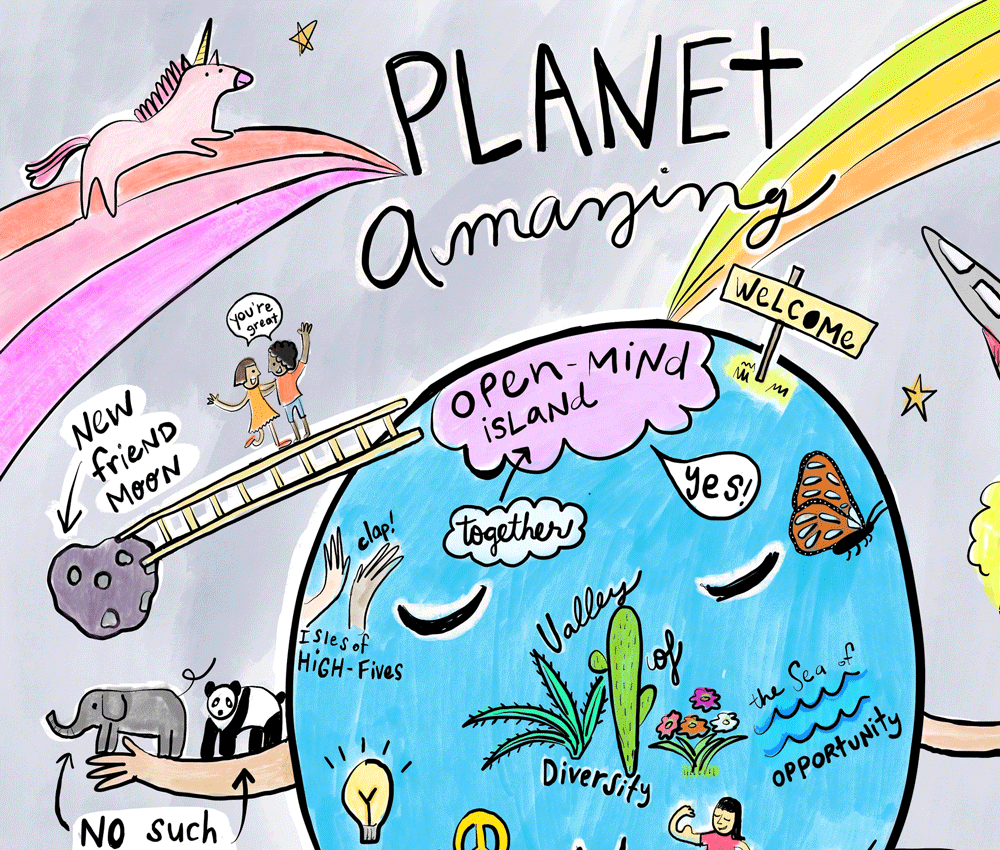 PLANET
amazing
WELCOME
you're
great
OPEN-MIND
ISLAND
New
friend
MOON
yes!
together
clap!
Isles of
HIGH-FIVES
Valley
of
Diversity
the Sea of
OPPORTUNITY
NO such